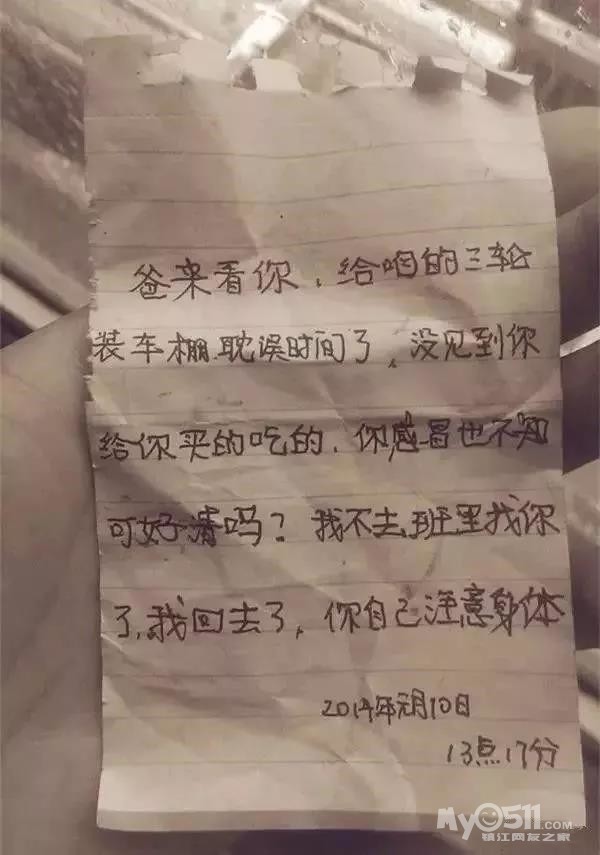 爸来看你，给咱的三轮
装车棚.耽误时间了，没见到你
给你买的吃的，你感冒也不知
可好清吗？我不去班里找你
了，我回去了，你自己注意身体
2014年元月10日
13点17分
My0511.com
镇江网友之家